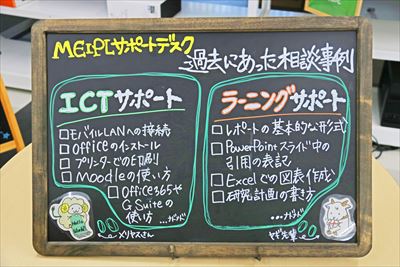 MEIPLサポートデスク
過去にあった相談事例
ICTサポート
□モバイルLANへの接続
□Officeのインストール
□プリンターでの印刷
□Moodleの使い方
□Office365や
G Suiteの
使い方 …などなど
メリヤスさん
ラーニングサポート
□レポートの基本的な形式
□PowerPointスライド中の
引用の表記
□Excelでの図表作成
□研究計画の書き方
…などなど
ヤギ先輩